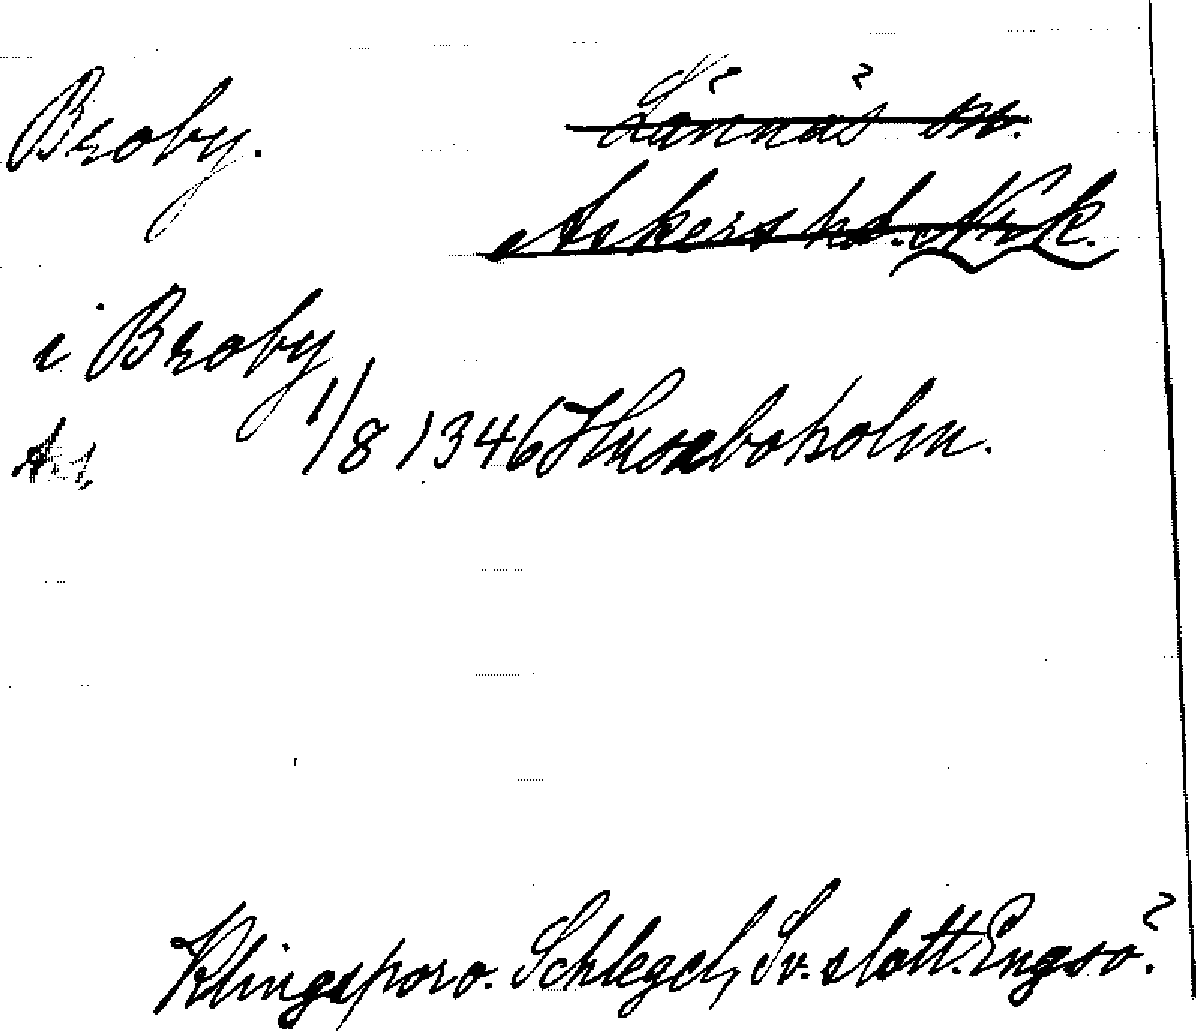 Broby. Lännäs sn.
Askers hd. Nrk.
i Broby
As, 1/8 1346 Husaboholm.
Klingspor o. Schlegel, Sv. slott. Engsö.